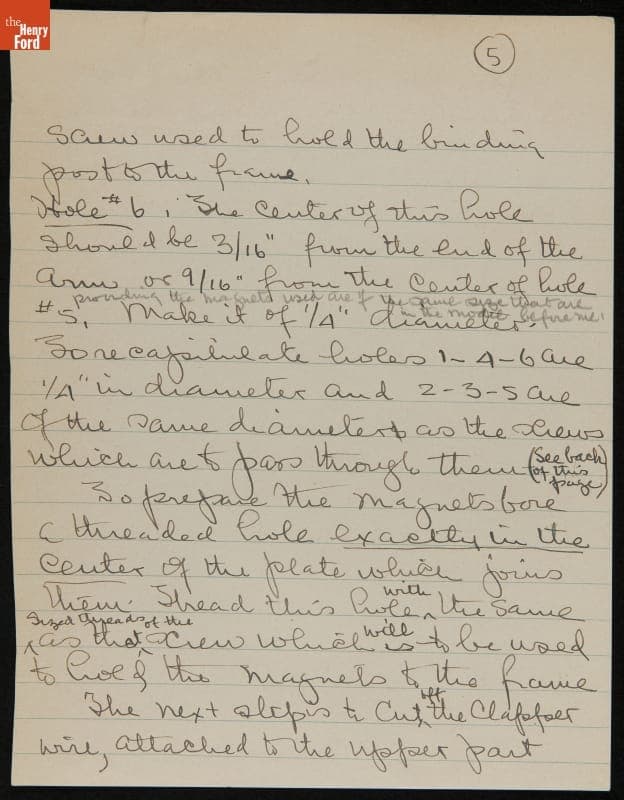 the
Henry
Ford
5
Screw used to hold the binding
post to the frame.
Hole #6. The center of this hole
should be 3/16" from the end of the
arm or 9/16" from the center of hole
providing the magnets used are of the same size that are
in the model before me!
#5. Make it of 1/4" diameter.
To recapitulate holes 1-4-6 are
1/4" in diameter and 2-3-5 are
of the same diameter as the screws
which are to pass through them (See back
of this
page)
To prepare the magnets bore
a threaded hole exactly in the
center of the plate which joins
them. Thread this hole with the same
sized threads of the
as that screw which will to be used
to hold the magnets to the frame
The next step is to cut off the clapper
wire, attached to the upper part